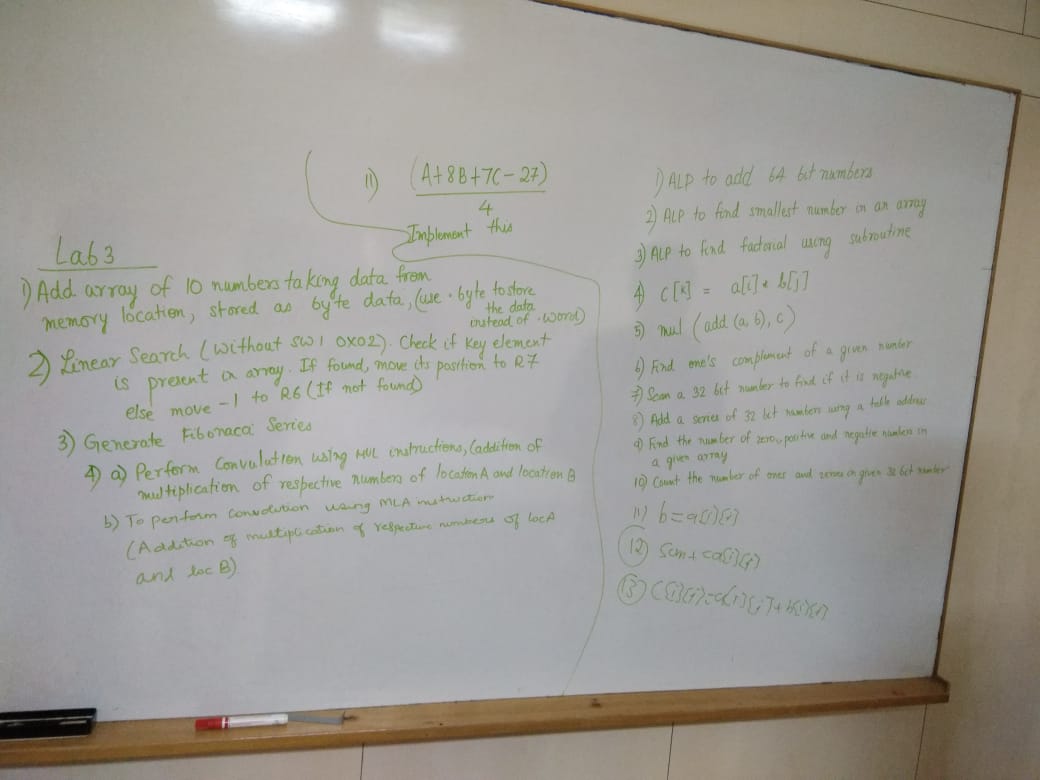 11) (A+8B+7C-27)
4
Implement this
Lab 3
1) Add array of 10 numbers taking data from
memory location, stored as byte data, (use .byte to store
the data
instead of .word)
2) Linear Search (without SWI 0x02). Check if key element
is present in array. If found, move its position to R7
else move -1 to R6 (If not found)
3) Generate Fibonaca Series
4) a) Perform Convulation using MUL instructions, (addition of
multiplication of respective numbers of location A and location B
b) To perform convolution using MLA instruction
(Addition of multiplication of respective numbers of loc A
and loc B)
1) ALP to add 64 bit numbers
2) ALP to find smallest number in an array
3) ALP to find factorial using subroutine
4) c[k] = a[i] * b[j]
5) mul (add (a, b), c)
6) Find one's complement of a given number
7) Scan a 32 bit number to find if it is negative
8) Add a series of 32 bit numbers using a table address
9) Find the number of zero, positive and negative numbers in
a given array
10) Count the number of ones and zeroes in given 32 bit number
11) b=a[i][j]
12) Sum + =a[i][j]
13) C[i][j]=a[i][j]+b[i][j]